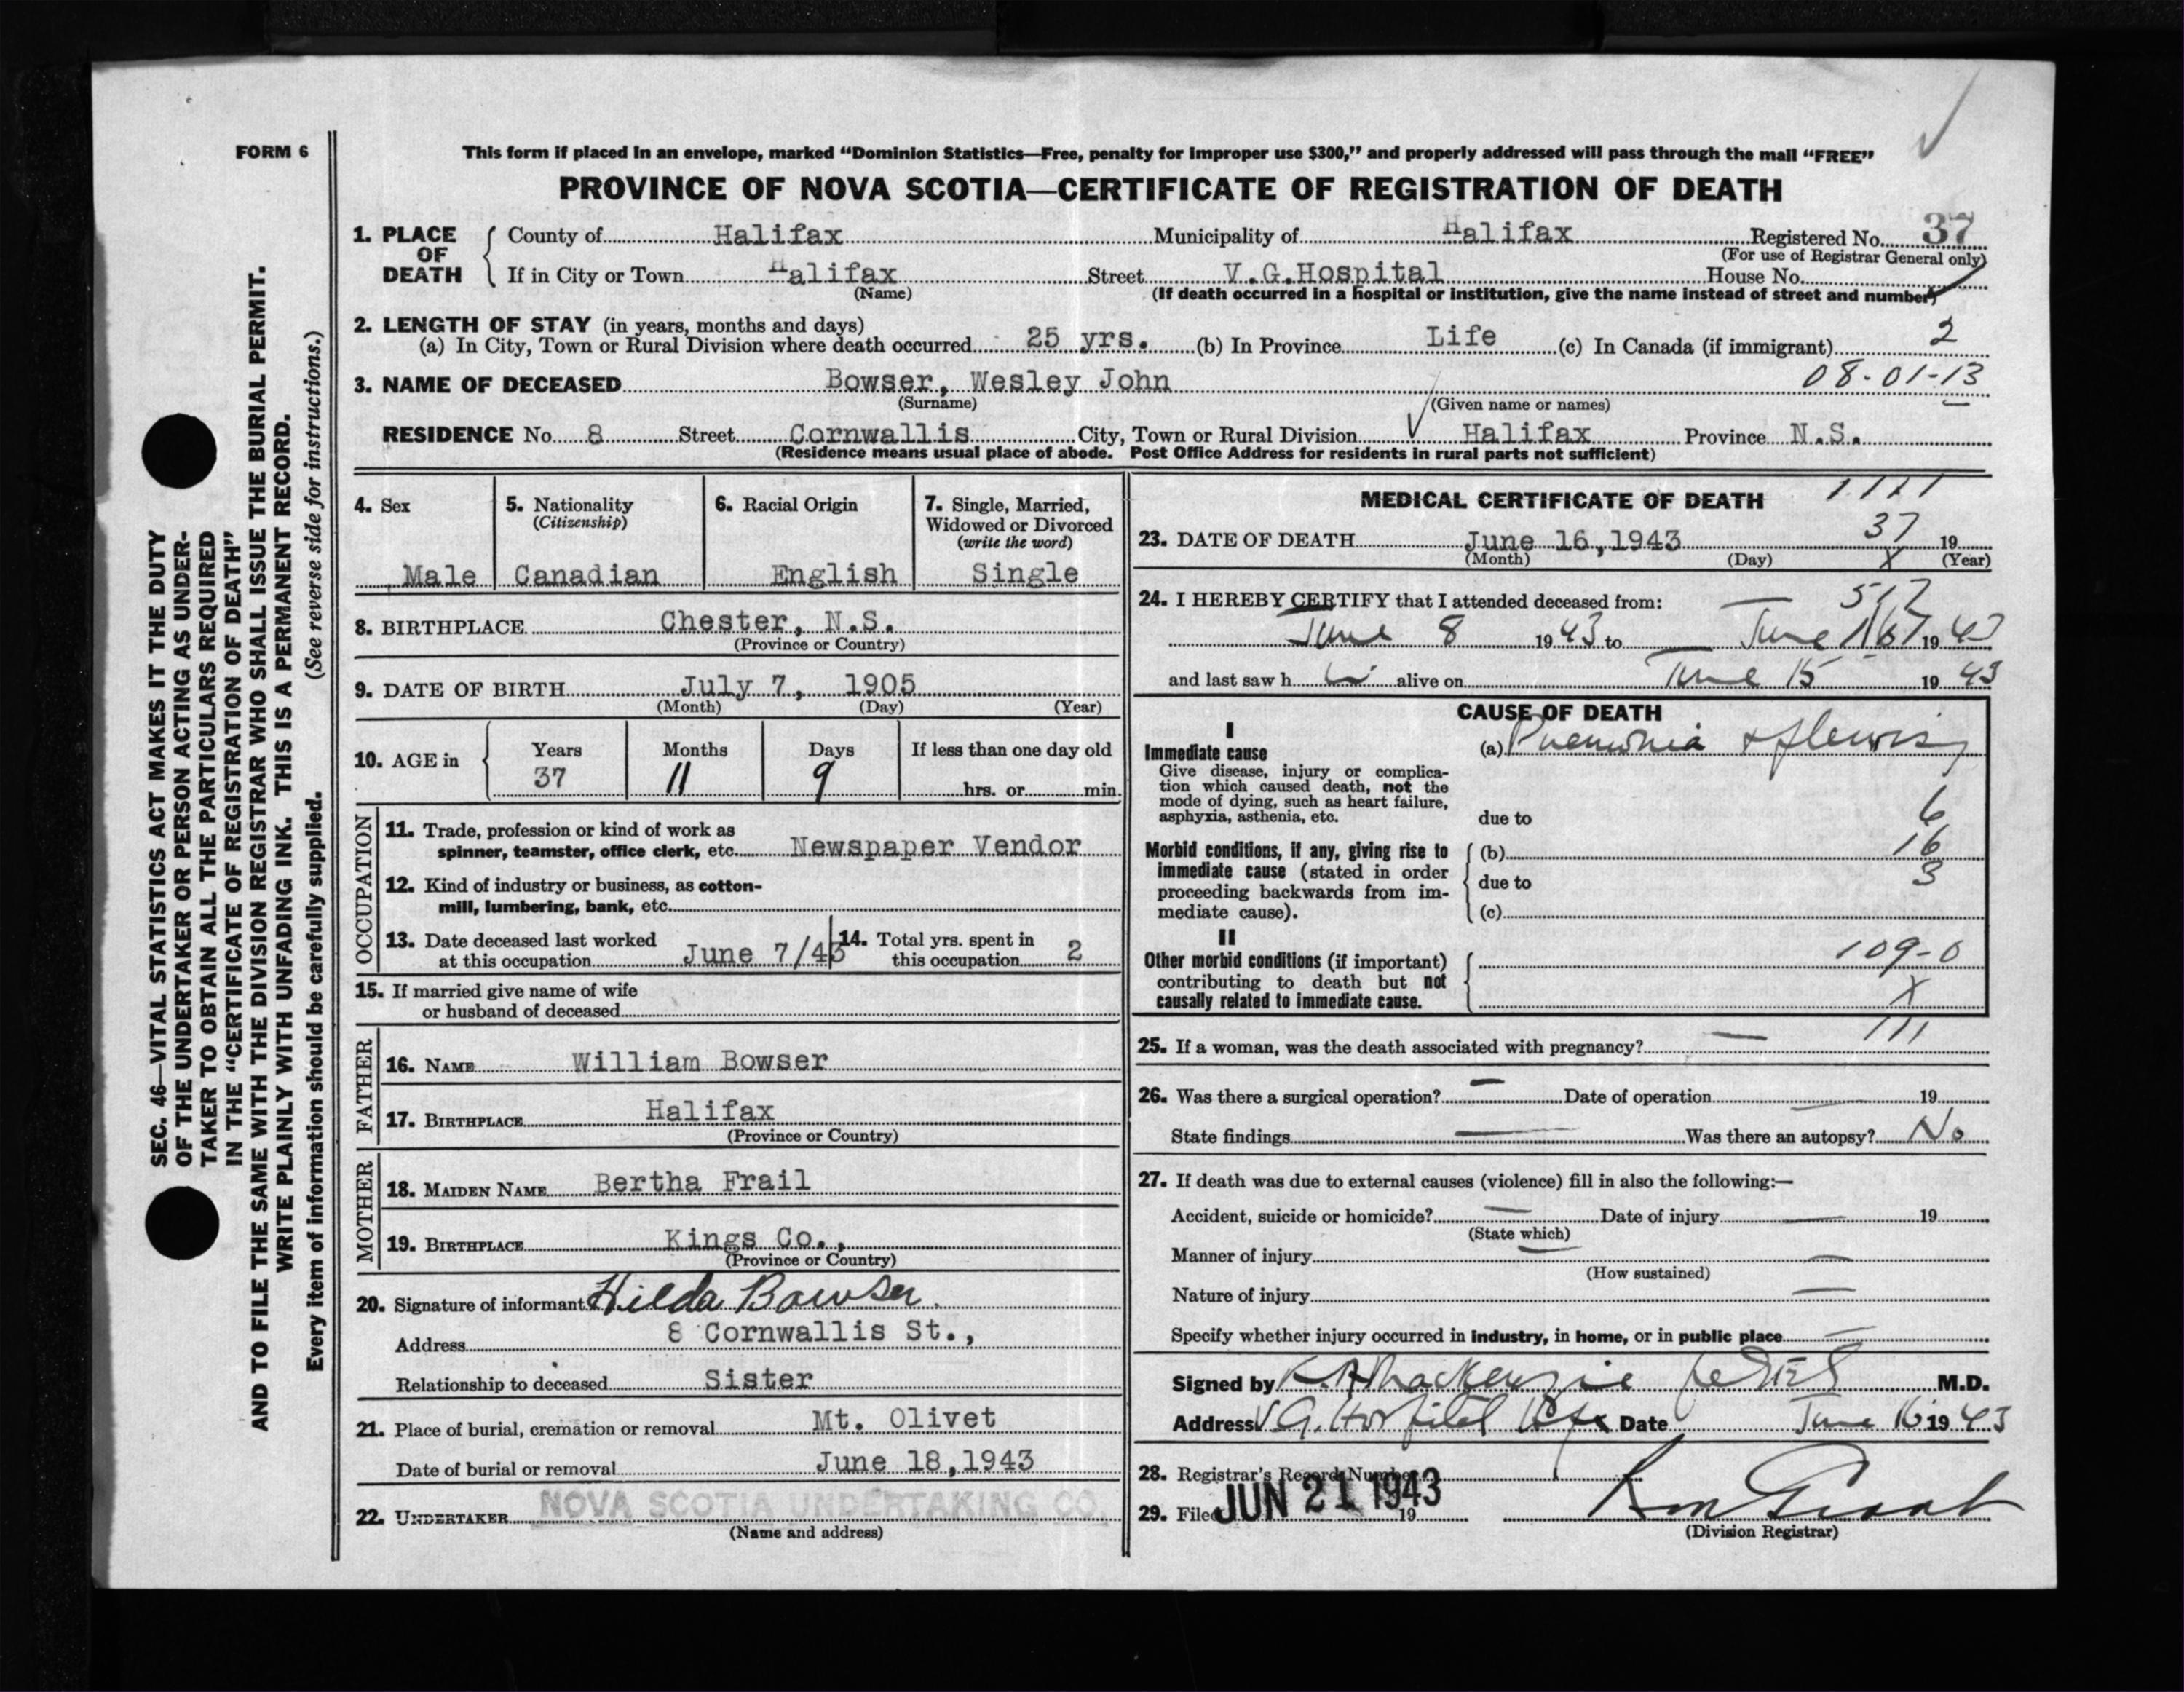 FORM 6
This form if placed in an envelope, marked “Dominion Statistics—Free, penalty for improper use $300,” and properly addressed will pass through the mail “FREE”
PROVINCE OF NOVA SCOTIA—CERTIFICATE OF REGISTRATION OF DEATH
1. PLACE OF DEATH
County of Halifax Municipality of Halifax Registered No. 37
(For use of Registrar General only)
If in City or Town Halifax Street V.G.Hospital House No.
(Name) (If death occurred in a hospital or institution, give the name instead of street and number)
2. LENGTH OF STAY (in years, months and days)
(a) In City, Town or Rural Division where death occurred 25 yrs. (b) In Province Life (c) In Canada (if immigrant) 2
3. NAME OF DECEASED Bowser, Wesley John 08-01-13
(Surname) (Given name or names)
RESIDENCE No. 8 Street Cornwallis City, Town or Rural Division Halifax Province N.S.
(Residence means usual place of abode. Post Office Address for residents in rural parts not sufficient)
4. Sex
Male
5. Nationality
(Citizenship)
Canadian
6. Racial Origin
English
7. Single, Married,
Widowed or Divorced
(write the word)
Single
8. BIRTHPLACE Chester, N.S.
(Province or Country)
9. DATE OF BIRTH July 7, 1905
(Month) (Day) (Year)
10. AGE in
Years Months Days If less than one day old
37 11 9 hrs. or min.
OCCUPATION
11. Trade, profession or kind of work as
spinner, teamster, office clerk, etc. Newspaper Vendor
12. Kind of industry or business, as cotton-
mill, lumbering, bank, etc.
13. Date deceased last worked
at this occupation June 7/43
14. Total yrs. spent in
this occupation 2
15. If married give name of wife
or husband of deceased
FATHER
16. NAME William Bowser
17. BIRTHPLACE Halifax
(Province or Country)
MOTHER
18. MAIDEN NAME Bertha Frail
19. BIRTHPLACE Kings Co.,
(Province or Country)
20. Signature of informant Hilda Bowser.
Address 8 Cornwallis St.,
Relationship to deceased Sister
21. Place of burial, cremation or removal Mt. Olivet
Date of burial or removal June 18,1943
22. UNDERTAKER NOVA SCOTIA UNDERTAKING CO.
(Name and address)
MEDICAL CERTIFICATE OF DEATH
37
23. DATE OF DEATH June 16,1943 19
(Month) (Day) (Year)
X
24. I HEREBY CERTIFY that I attended deceased from:
June 8 1943 to June 16 1943
and last saw h alive on June 15 1943
CAUSE OF DEATH
I
Immediate cause
Give disease, injury or complica-
tion which caused death, not the
mode of dying, such as heart failure,
asphyxia, asthenia, etc.
(a) Pneumonia & pleurisy
due to 6
Morbid conditions, if any, giving rise to
immediate cause (stated in order
proceeding backwards from im-
mediate cause).
(b) 16
due to 3
(c)
II
Other morbid conditions (if important)
contributing to death but not
causally related to immediate cause.
109-0
X
111
25. If a woman, was the death associated with pregnancy? —
26. Was there a surgical operation? — Date of operation — 19
State findings — Was there an autopsy? No
27. If death was due to external causes (violence) fill in also the following:—
Accident, suicide or homicide? — Date of injury — 19
(State which)
Manner of injury — —
(How sustained)
Nature of injury —
Specify whether injury occurred in industry, in home, or in public place —
Signed by MacKenzie M.D.
Address V.G. Hospital Hfx Date June 16 1943
28. Registrar's Record Number
29. Filed JUN 21 1943 19
(Division Registrar)
SEC. 46—VITAL STATISTICS ACT MAKES IT THE DUTY
OF THE UNDERTAKER OR PERSON ACTING AS UNDER-
TAKER TO OBTAIN ALL THE PARTICULARS REQUIRED
IN THE “CERTIFICATE OF REGISTRATION OF DEATH”
AND TO FILE THE SAME WITH THE DIVISION REGISTRAR WHO SHALL ISSUE THE BURIAL PERMIT.
WRITE PLAINLY WITH UNFADING INK. THIS IS A PERMANENT RECORD.
Every item of information should be carefully supplied. (See reverse side for instructions.)